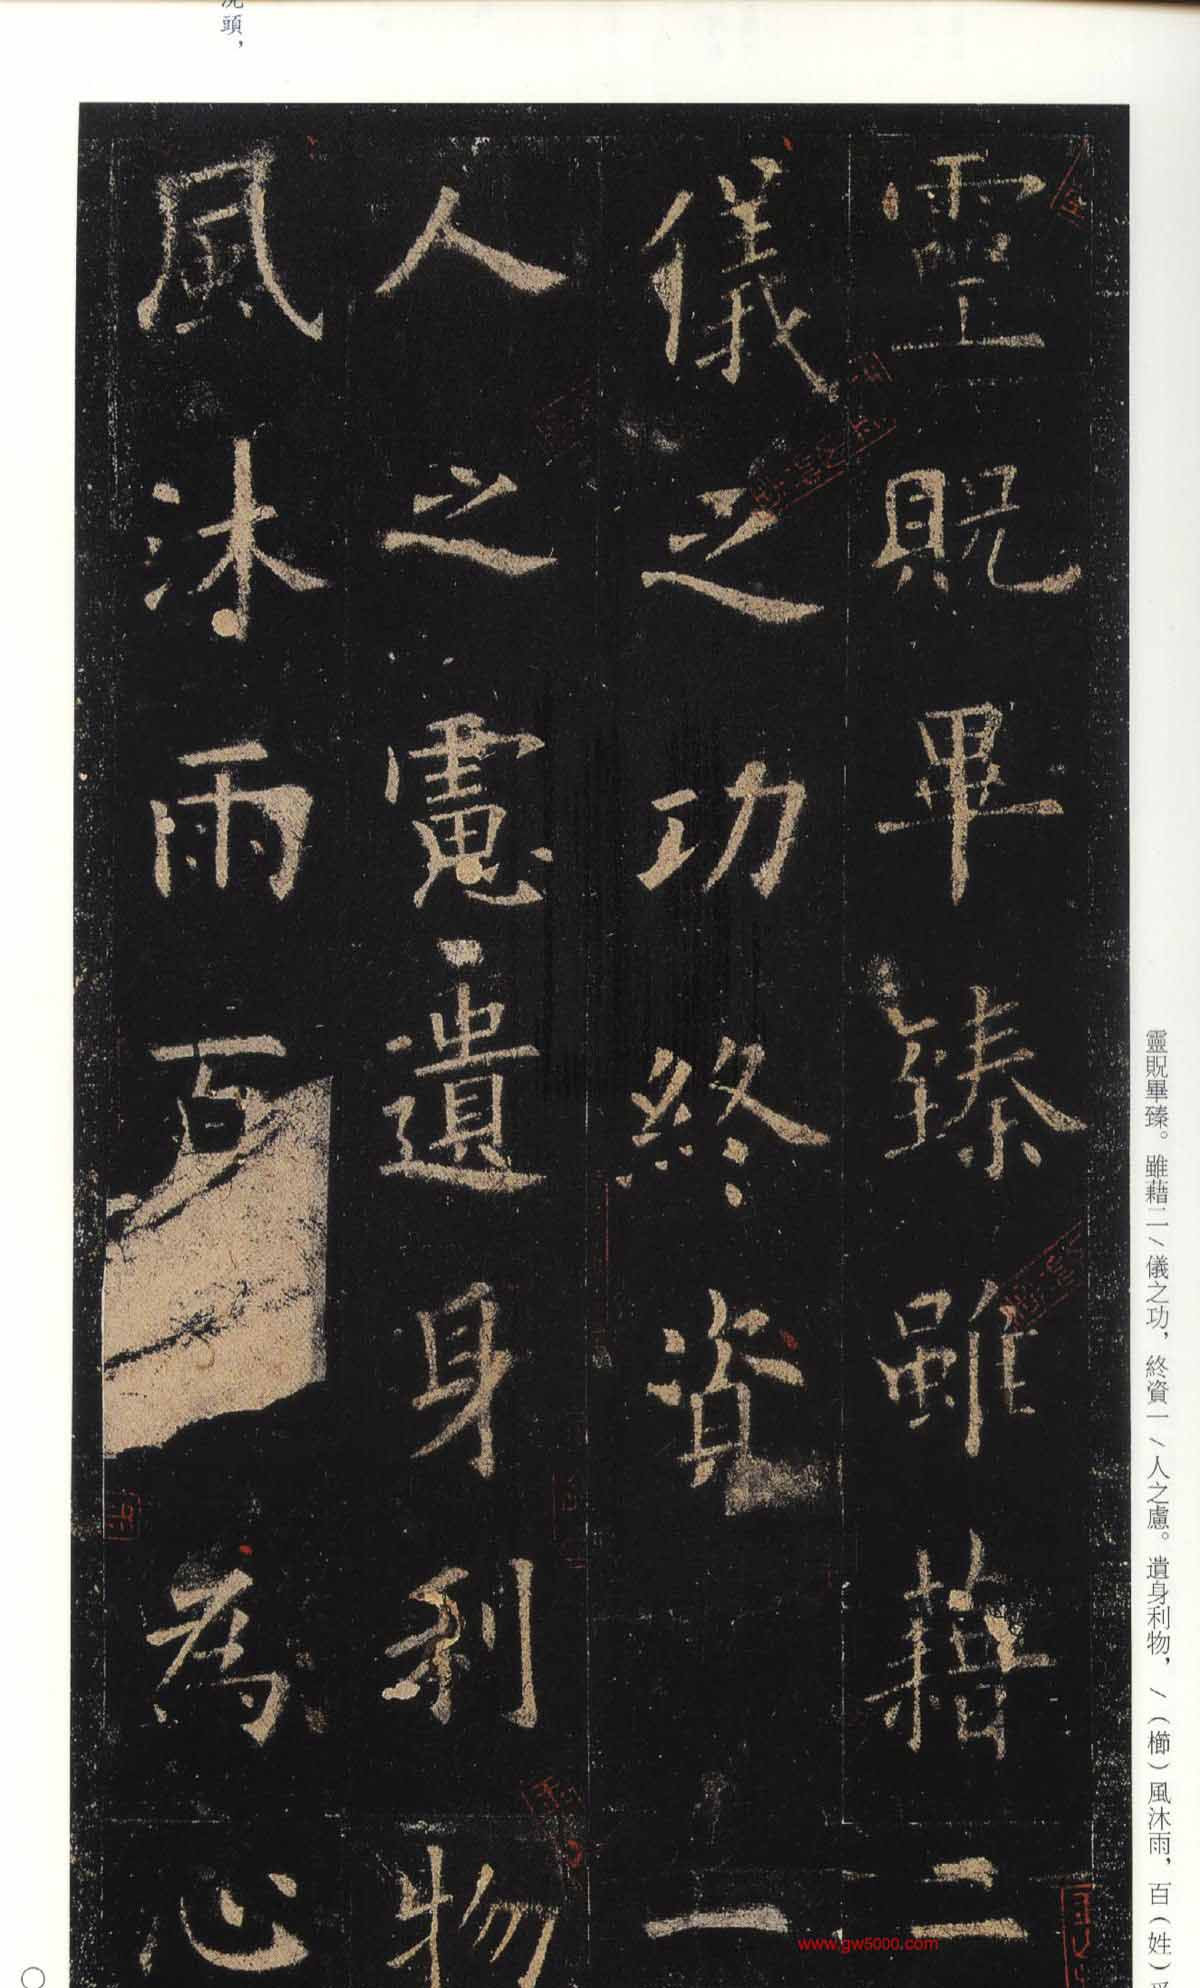 靈貺畢臻雖藉二
儀之功終資一
人之慮遺身利物
風沐雨百為心
靈貺畢臻。雖藉二／儀之功，終資一／人之慮。遺身利物，／（櫛）風沐雨，百（姓）
頭，
www.gw5000.com